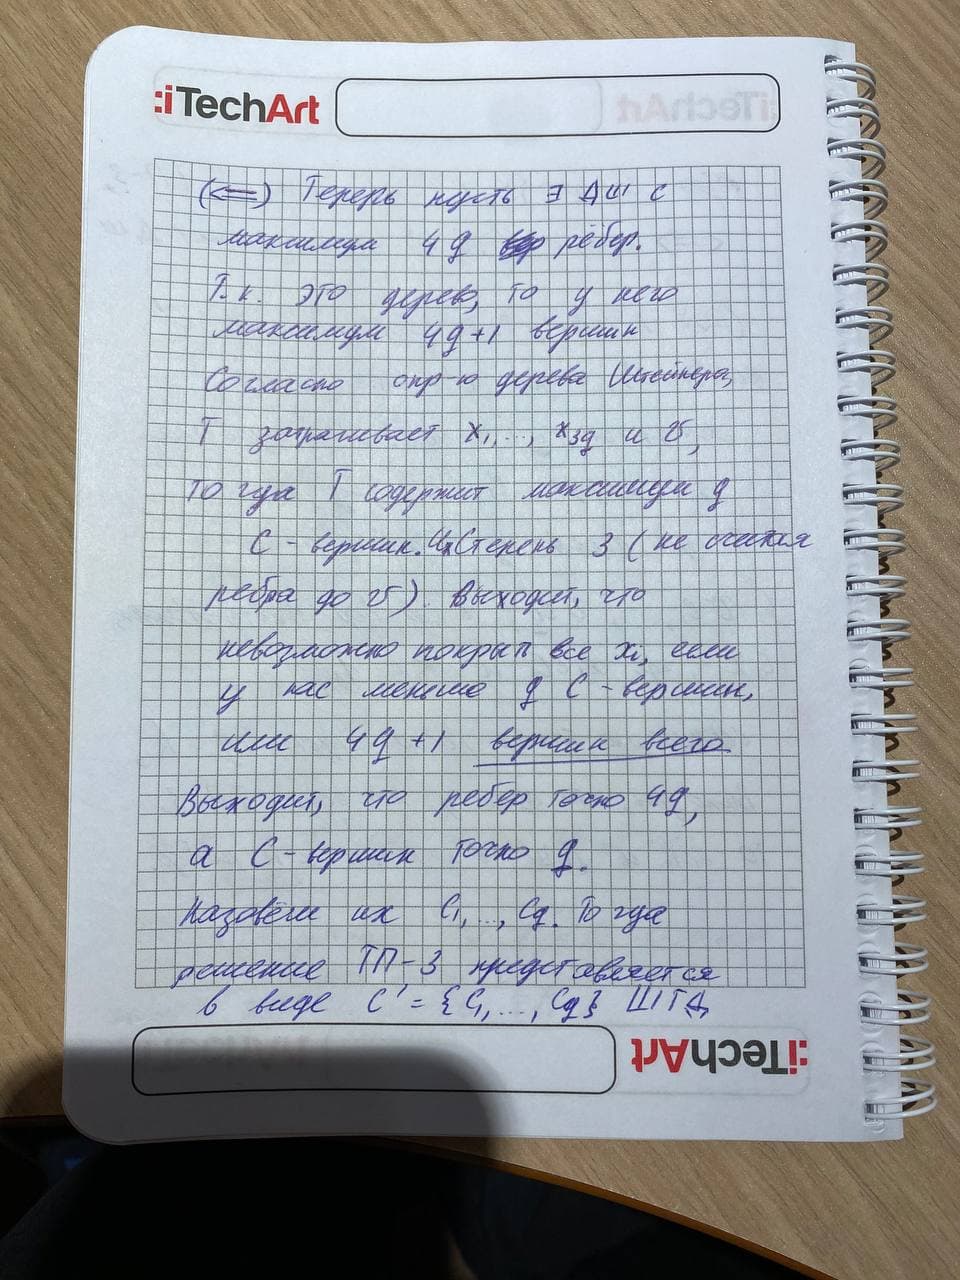 :iTechArt
(⇐) Теперь пусть ∃ ДШ с
максимум 4q рёбер.
Т.к. это дерево, то у него
максимум 4q+1 вершин
Согласно опр-ю дерева Штейнера,
T затрагивает x₁,..., x₃q и v,
тогда T содержит максимум q
C - вершин. Их степень 3 (не считая
ребра до v). Выходит, что
невозможно покрыть все xᵢ, если
у нас меньше q C - вершин,
или 4q+1 вершин всего
Выходит, что ребер точно 4q,
а C - вершин точно q.
Назовём их C₁,..., Cq. Тогда
решение ТП-3 представляется
в виде C' = {C₁,..., Cq} ШТД
:iTechArt